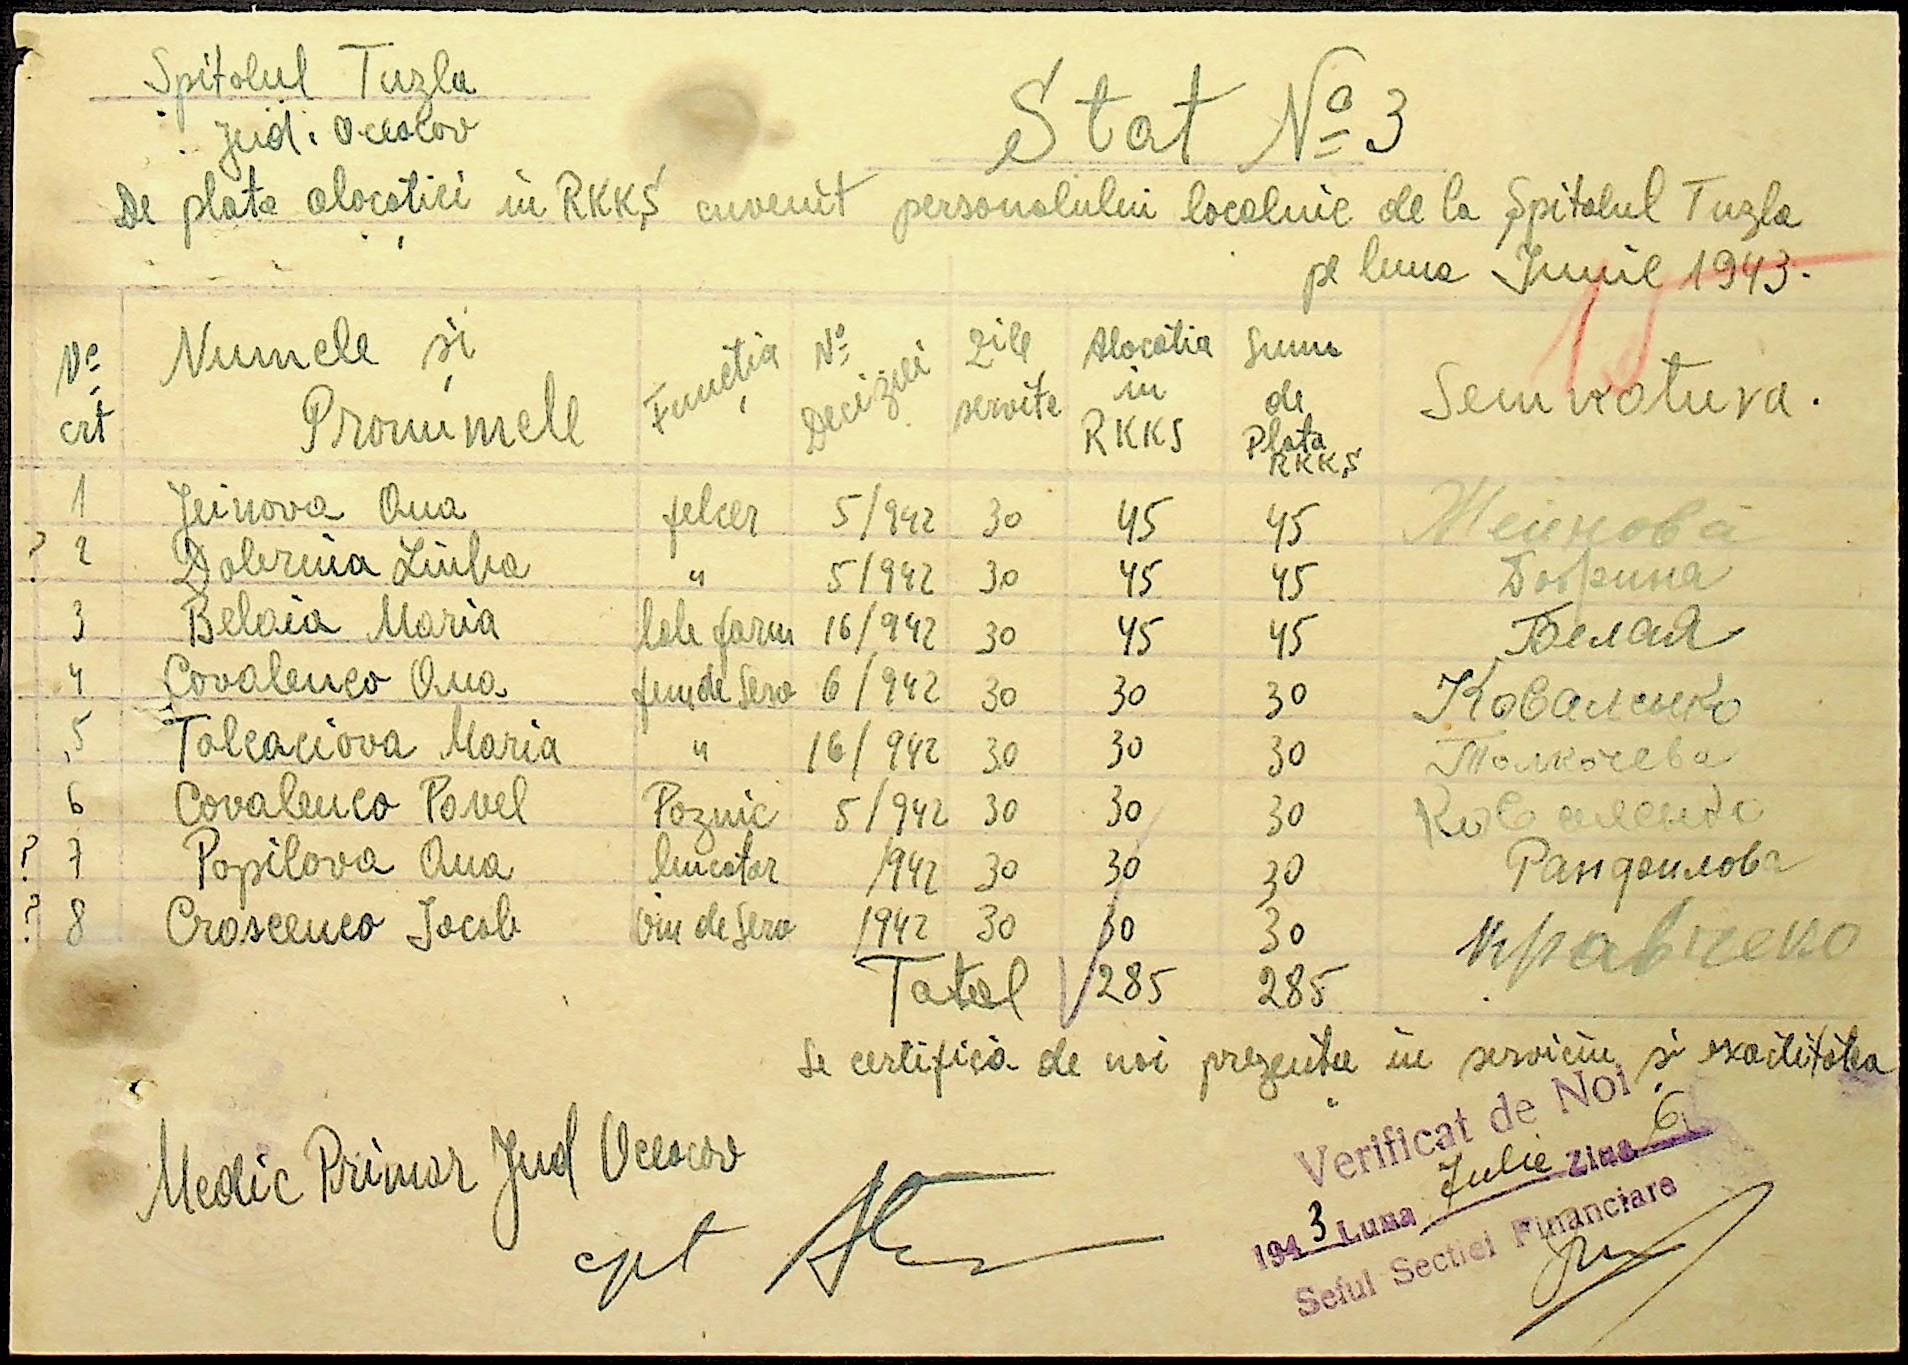 Spitalul Tuzla
Jud. Oceacov
Stat № 3
De plata alocatiei in RKKS cuvenit personalului localnic de la Spitalul Tuzla
pe luna Junie 1943.
15
№ crt Numele si Pronumele Functia № Deciziei Zile servite Alocatia in RKKS Suma de Plata RKKS Semnatura.
1 Jeinova Ana felcer 5/942 30 45 45 Жейнова
? 2 Doberina Liuba " 5/942 30 45 45
3 Belaia Maria lab farm 16/942 30 45 45 Белая
4 Covalenco Ana fem de Serv 6/942 30 30 30 Коваленко
5 Tolcaciova Maria " 16/942 30 30 30 Толкачева
6 Covalenco Pavel Paznic 5/942 30 30 30 Коваленко
? 7 Popilova Ana bucatar /942 30 30 30
? 8 Croscenco Jacob om de Serv /942 30 30 30 Кравченко
Total 285 285
Se certifica de noi prezenta in serviciu si exactitatea
Medic Primar Jud Oceacov
cpt
Verificat de Noi
1943 Luna Julie Ziua 6
Seful Sectiei Financiare